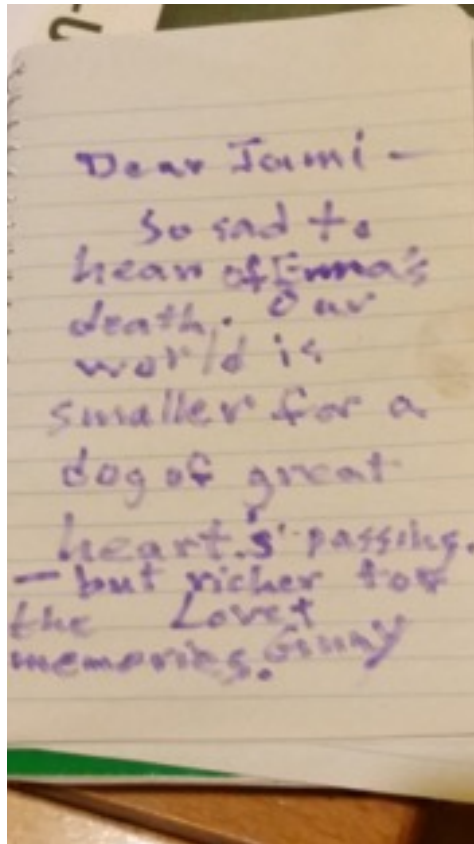 Dear Jami —
So sad to
hear of Emma's
death. Our
world is
smaller for a
dog of great
heart's passing.
— but richer for
the Love +
memories. Ginny